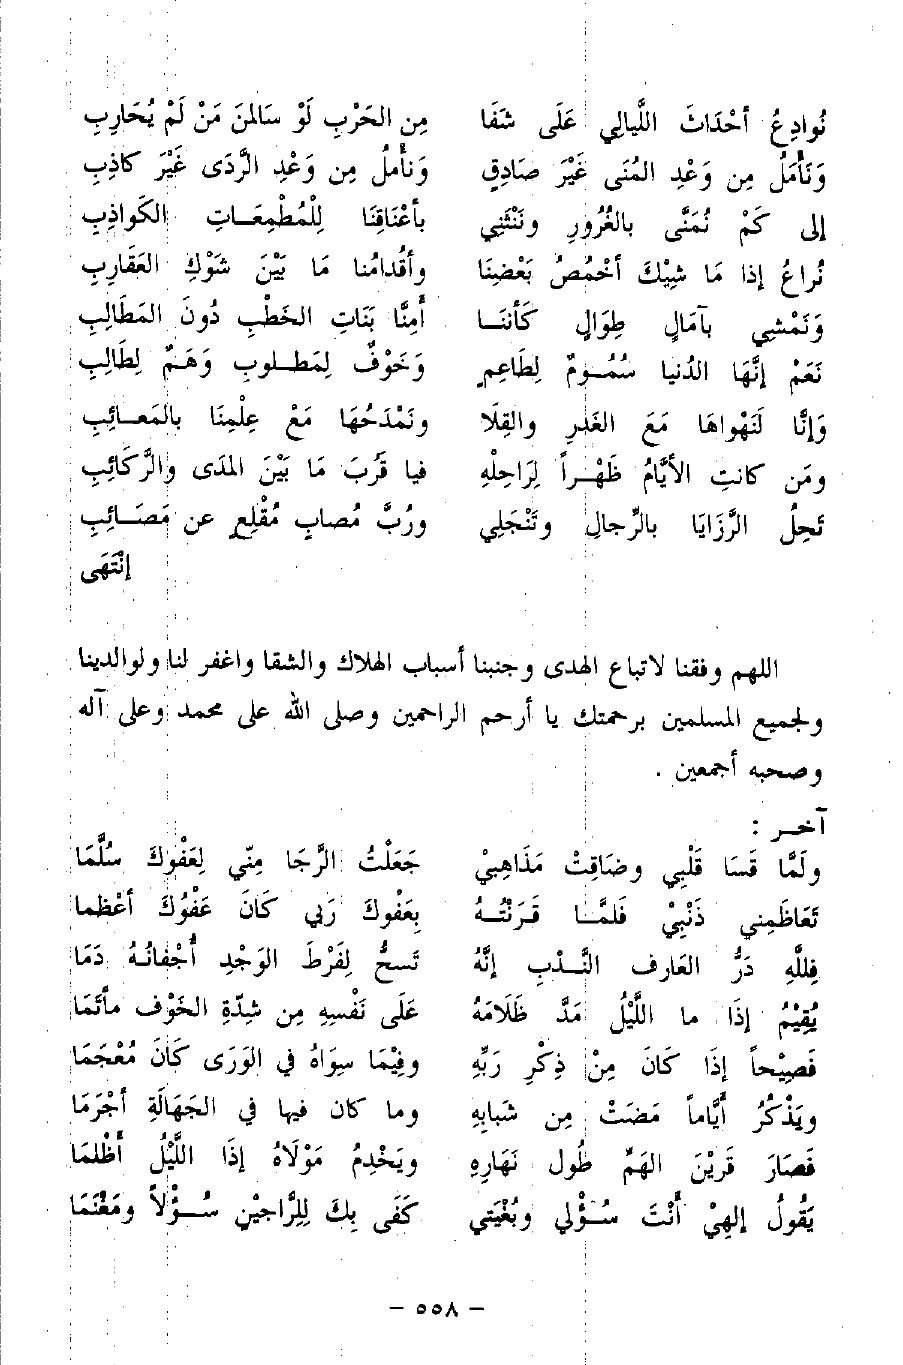 نُوادِعُ أحْدَاثَ اللَّيالِي عَلَى شَفَا مِن الحَرْبِ لَوْ سَالمنَ مَنْ لَمْ يُحَارِبِ
وَنَأمَلُ مِن وَعْدِ المُنَى غَيْرَ صَادِقٍ وَنَأْملُ مِن وَعْدِ الرَّدَى غَيْرَ كاذِبِ
إلى كَمْ نُمَنَّى بالغُرُورِ ونَنْثَنِي بأعْنَاقِنَا لِلْمُطْمِعَاتِ الكَواذِبِ
نُراعُ إذا مَا شِيْكَ أخْمُصُ بَعْضِنَا وأقْدامُنا مَا بَيْنَ شَوْكِ العَقَارِبِ
وَنَمْشِي بآمَالٍ طِوَالٍ كَأننَا أمِنَّا بَنَاتِ الخَطْبِ دُونَ المَطَالِبِ
نَعَمْ إنَّهَا الدُنيا سُمُومٌ لِطَاعِمٍ وَخَوْفٌ لِمَطلوبٍ وَهَمٌ لِطَالِبِ
وَإنَّا لَنَهْواهَا مَعَ الغَدْرِ والقِلَا ونَمْدَحُهَا مَعْ عِلْمِنَا بالمَعائِبِ
ومَن كانتِ الأيَّامُ ظَهْراً لِرَاحِلْهِ فيا قَرُبَ مَا بَيْنَ المَدَى والرَّكَائِبِ
تَحِلُ الرَّزَايَا بالرِّجالِ وتَنْجَلِي ورُبَّ مُصابٍ مُقْلِعٍ عن مَصَائِبِ
إنْتَهَى
اللهم وفقنا لاتباع الهدى وجنبنا أسباب الهلاك والشقا واغفر لنا ولوالدينا
ولجميع المسلمين برحمتك يا أرحم الراحمين وصلى الله على محمد وعلى آله
وصحبه أجمعين .
آخر :
ولَمَّا قَسَا قَلْبِي وضَاقِتْ مَذَاهِبِيْ جَعَلْتُ الرَّجَا مِنّي لِعَفْوِكَ سُلَّمَا
تَعَاظَمِني ذَنْبِيْ فَلمَّا قَرَنْتُهُ بِعَفوكَ رَبي كَانَ عَفْوُكَ أعْظما
فِللَّهِ دَرُّ العَارف النَّدْبِ إنَّهُ تَسحُّ لِفَرْطَ الوَجْدِ أجْفانُهُ دَمَا
يُقِيْمُ إذَا ما اللَّيْلُ مَدَّ ظَلَامَهُ عَلَى نَفْسِهِ مِن شِدّةِ الخَوْف مأتَمَا
فَصِيْحاً إذَا كَانَ مِنْ ذِكْرِ رَبِّهِ وفِيْمَا سِوَاهُ في الوَرَى كَانَ مُعْجَمَا
ويَذْكُرُ أيَّاماً مَضَتْ مِن شَبابِهِ وما كان فيها في الجَهَالَةِ أجْرَمَا
فَصَارَ قَرِيْنَ الهَمِّ طُول نَهَارِهِ ويَخْدِمُ مَوْلَاهُ إذَا اللَّيْلُ أظْلمَا
يَقُولُ إلهِيْ أنْتَ سُؤْلي وبُغْيَتي كَفَى بِكَ لِلرَّاجيْنِ سُؤْلاً ومَغْنَمَا
– ٥٥٨ –